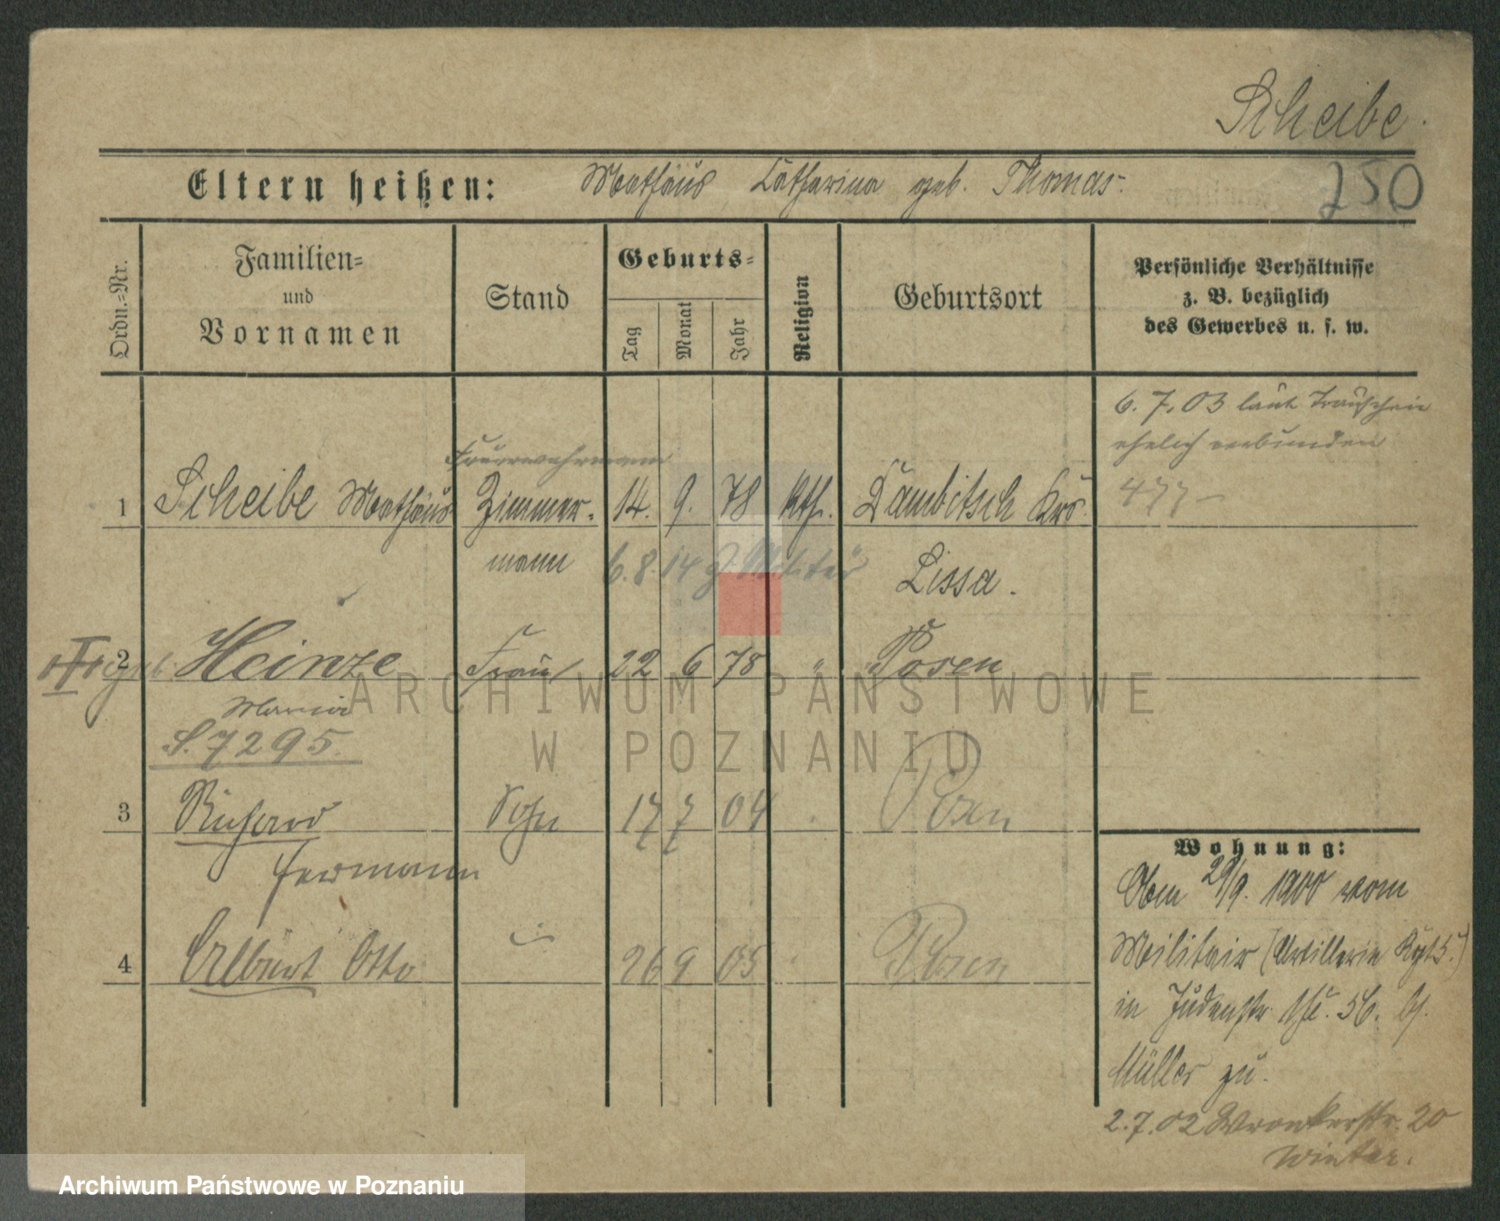 Scheibe.
Eltern heißen: Mathäus, Catharina geb. Thomas.
250
Ordn.=Nr.
Familien=
und
Vornamen
Stand
Geburts=
Tag
Monat
Jahr
Religion
Geburtsort
Persönliche Verhältnisse
z. B. bezüglich
des Gewerbes u. s. w.
6. 7. 03 laut Trauschein
ehelich verbunden
477
Feuerwehrmann
1 Scheibe Mathäus Zimmer- 14. 9. 78 kth. Lambitsch Krs
mann 6. 8. 14 z. Militär Lissa.
2 geb. Heinze Frau 22 6 78 " Posen
Maria
S. 7295.
3 Richard Sohn 17 7 04 Posen
Hermann
4 Albert Otto 26 9 05 Posen
Wohnung:
29/9. 1900 vom
Militair (Artillerie Rgt 5.)
in Judenstr. 56. b/.
Müller zu.
2. 7. 02 Wronkerstr. 20
Winter.
ARCHIWUM PAŃSTWOWE
W POZNANIU
Archiwum Państwowe w Poznaniu